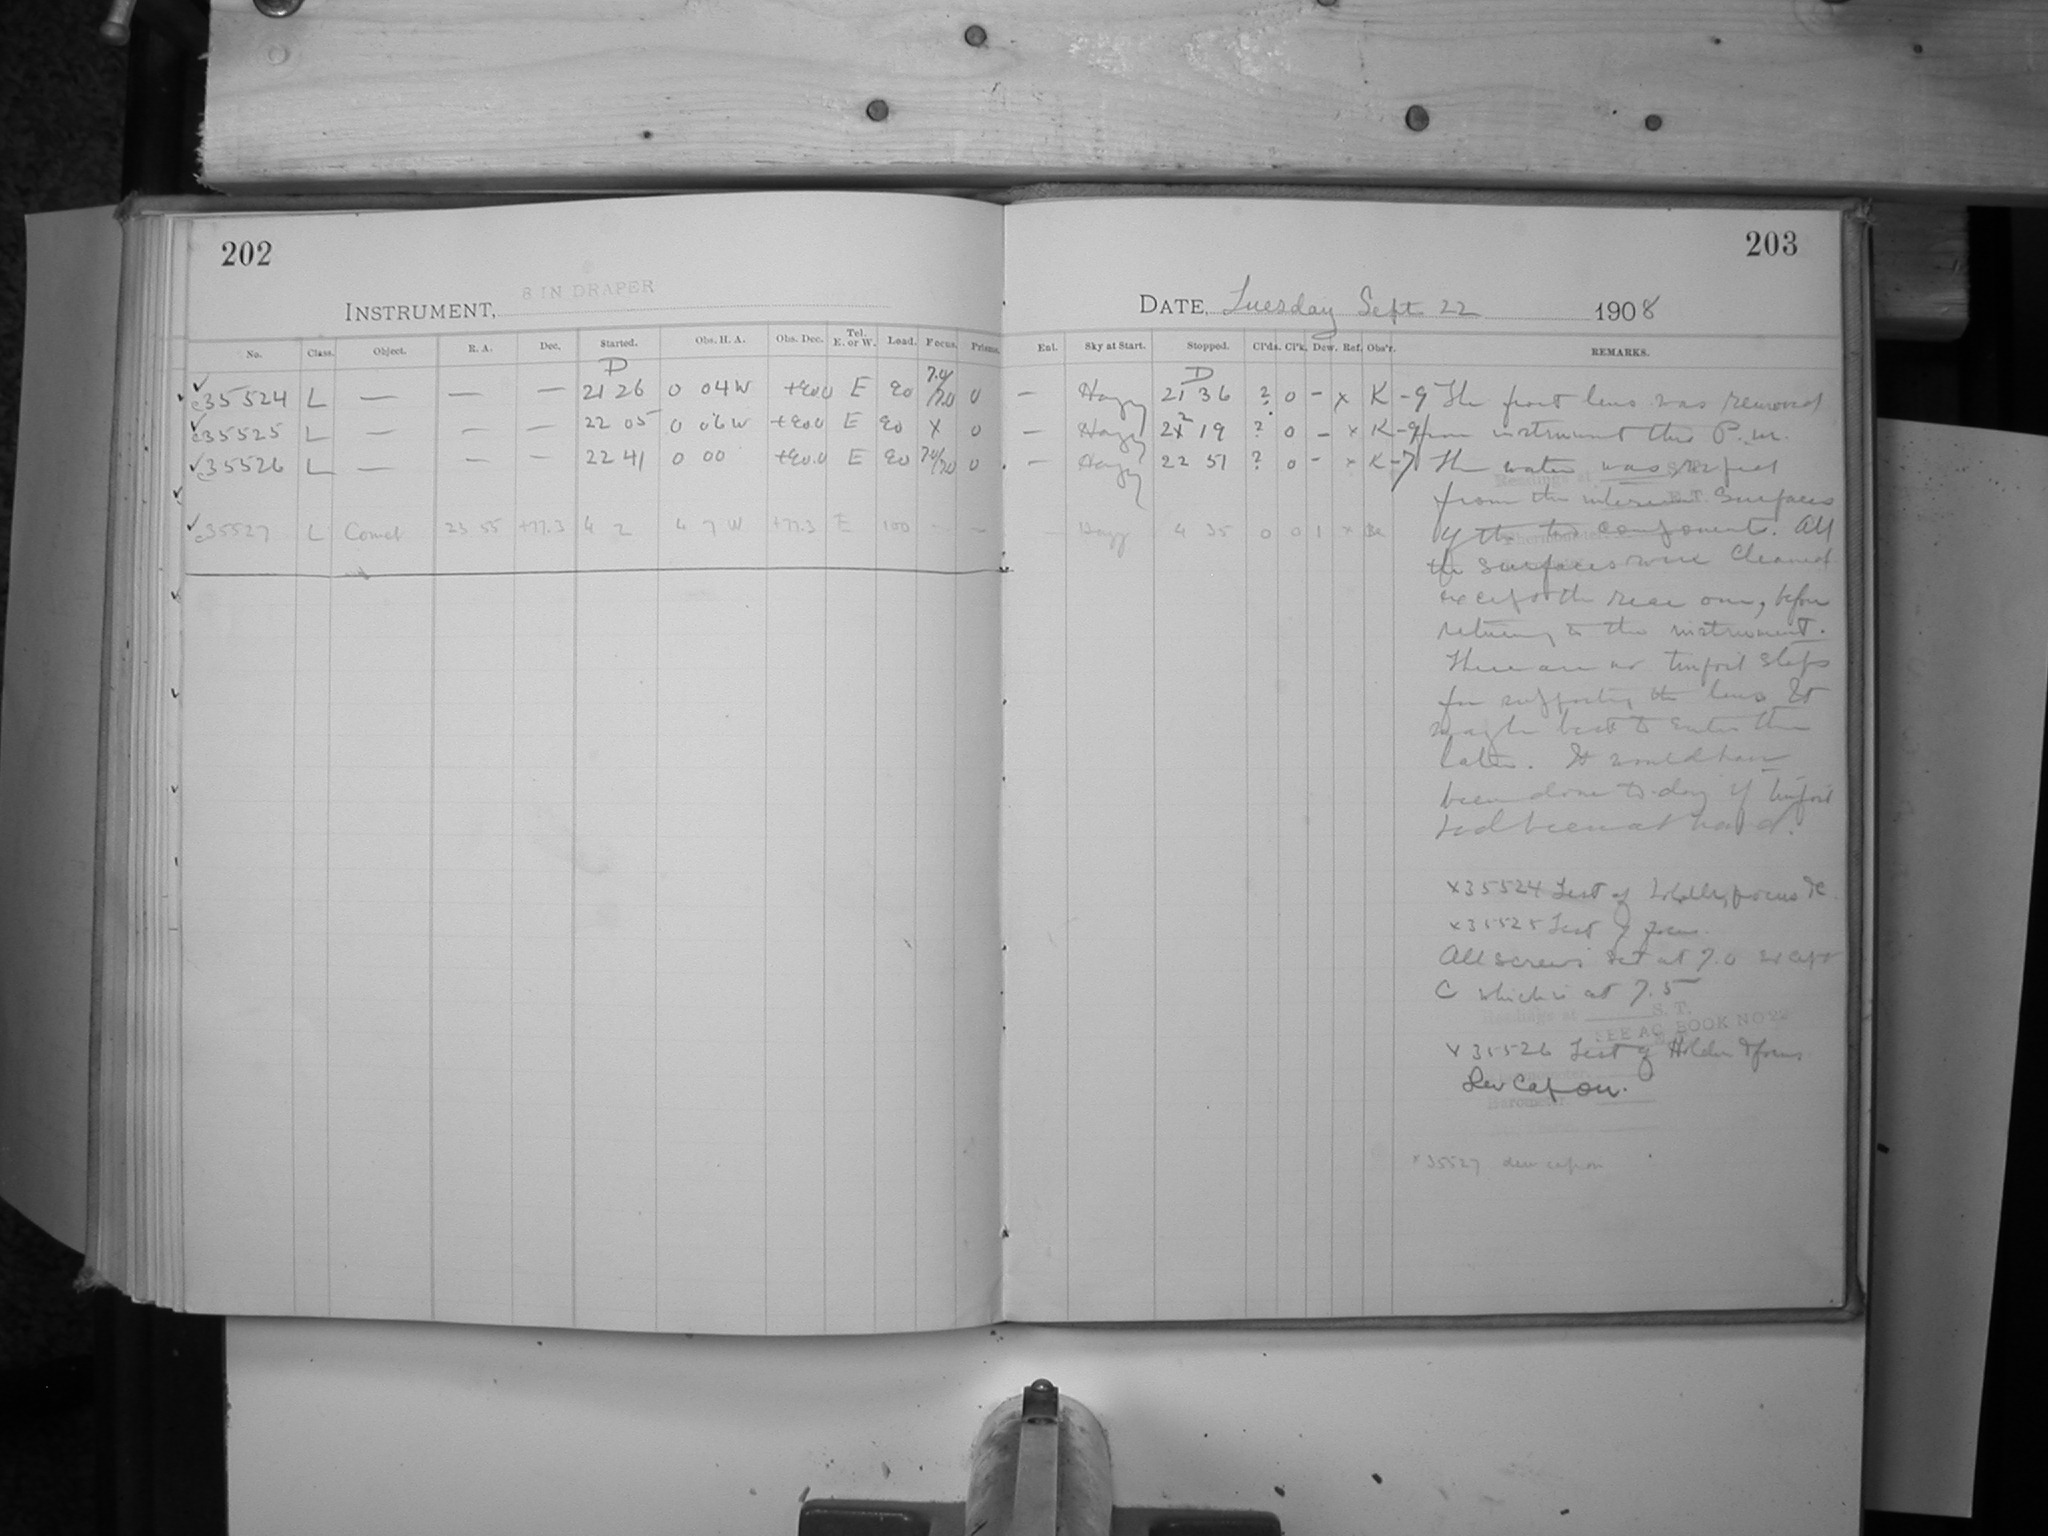 202
INSTRUMENT, 8 IN DRAPER
No. Class. Object. R. A. Dec. Started. Obs. H. A. Obs. Dec. Tel. E. or W. Load. Focus. Prisms.
D
c35524 L — — — 21 26 0 04 W +90.0 E 90 7.0/7.0 0
c35525 L — — — 22 05 0 06 W +90.0 E 90 X 0
c35526 L — — — 22 41 0 00 +90.0 E 90 70/70 0
c35527 L Comet 23 55 +77.3 4 2 4 7 W +77.3 E 100 — —
203
DATE, Tuesday Sept 22 1908
Ent. Sky at Start. Stopped. Cl'ds. Cl'k. Dew. Ref. Obs'r. REMARKS.
D
— Hazy 21 36 ? 0 – x K-9 The front lens was removed
— Hazy 22 19 ? 0 – x K-9 from instrument this P.M.
— Hazy 22 51 ? 0 – x K-7 The water was wiped
from the interior surfaces
— Hazy 4 35 0 0 1 x Be of the two components. All
the surfaces were cleaned
except the rear one, before
returning to the instrument.
There are no tinfoil stops
for supporting the lens. It
may be best to enter them
later. It would have
been done to-day if tinfoil
had been at hand.
x35524 Test of Holder, focus &c
x35525 Test of focus.
All screws set at 7.0 except
C which is at 7.5
Readings at S. T.
SEE AG BOOK NO 22
x 35526 Test of Holder & focus
Dew Cap on.
Barometer
x35527 dew cap on